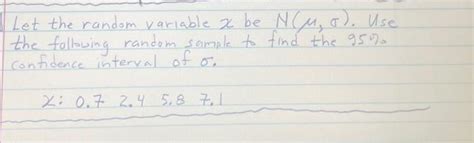 Let the random variable x be N(μ, σ). Use
the following random sample to find the 95%
confidence interval of σ.
x: 0.7 2.4 5.8 7.1